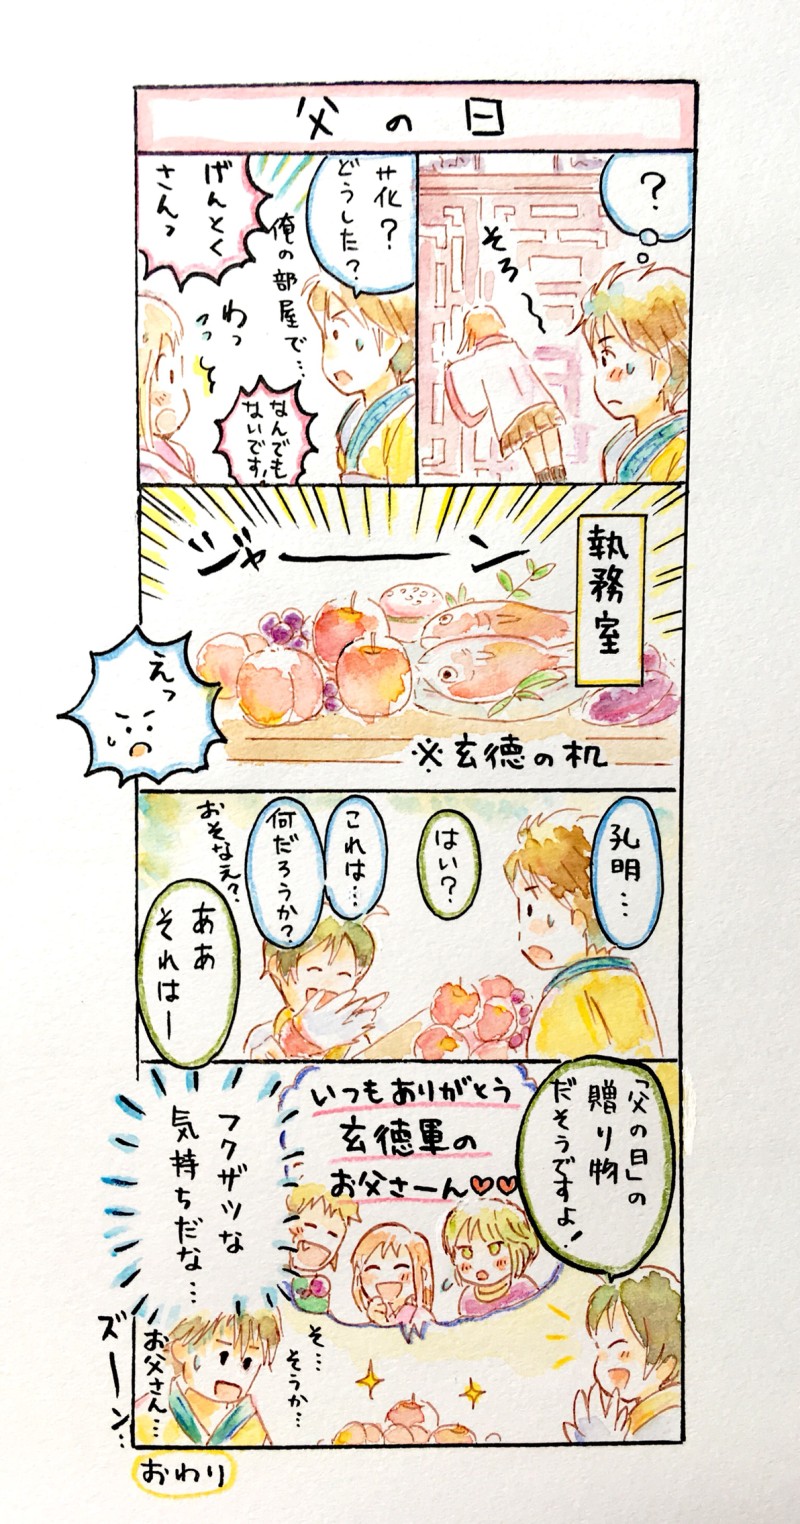 父の日
？
そろ〜
花？
どうした？
俺の部屋で…
げんとく
さんっ
わっ
なんでも
ないです！
執務室
ジャーーン
えっ
※玄徳の机
孔明…
はい？
これは…
何だろうか？
おそなえ？
ああ
それはー
「父の日」の
贈り物
だそうですよ！
いつもありがとう
玄徳軍の
お父さーん♡♡
そ…
そうか…
フクザツな
気持ちだな…
お父さん…
ズーン…
おわり